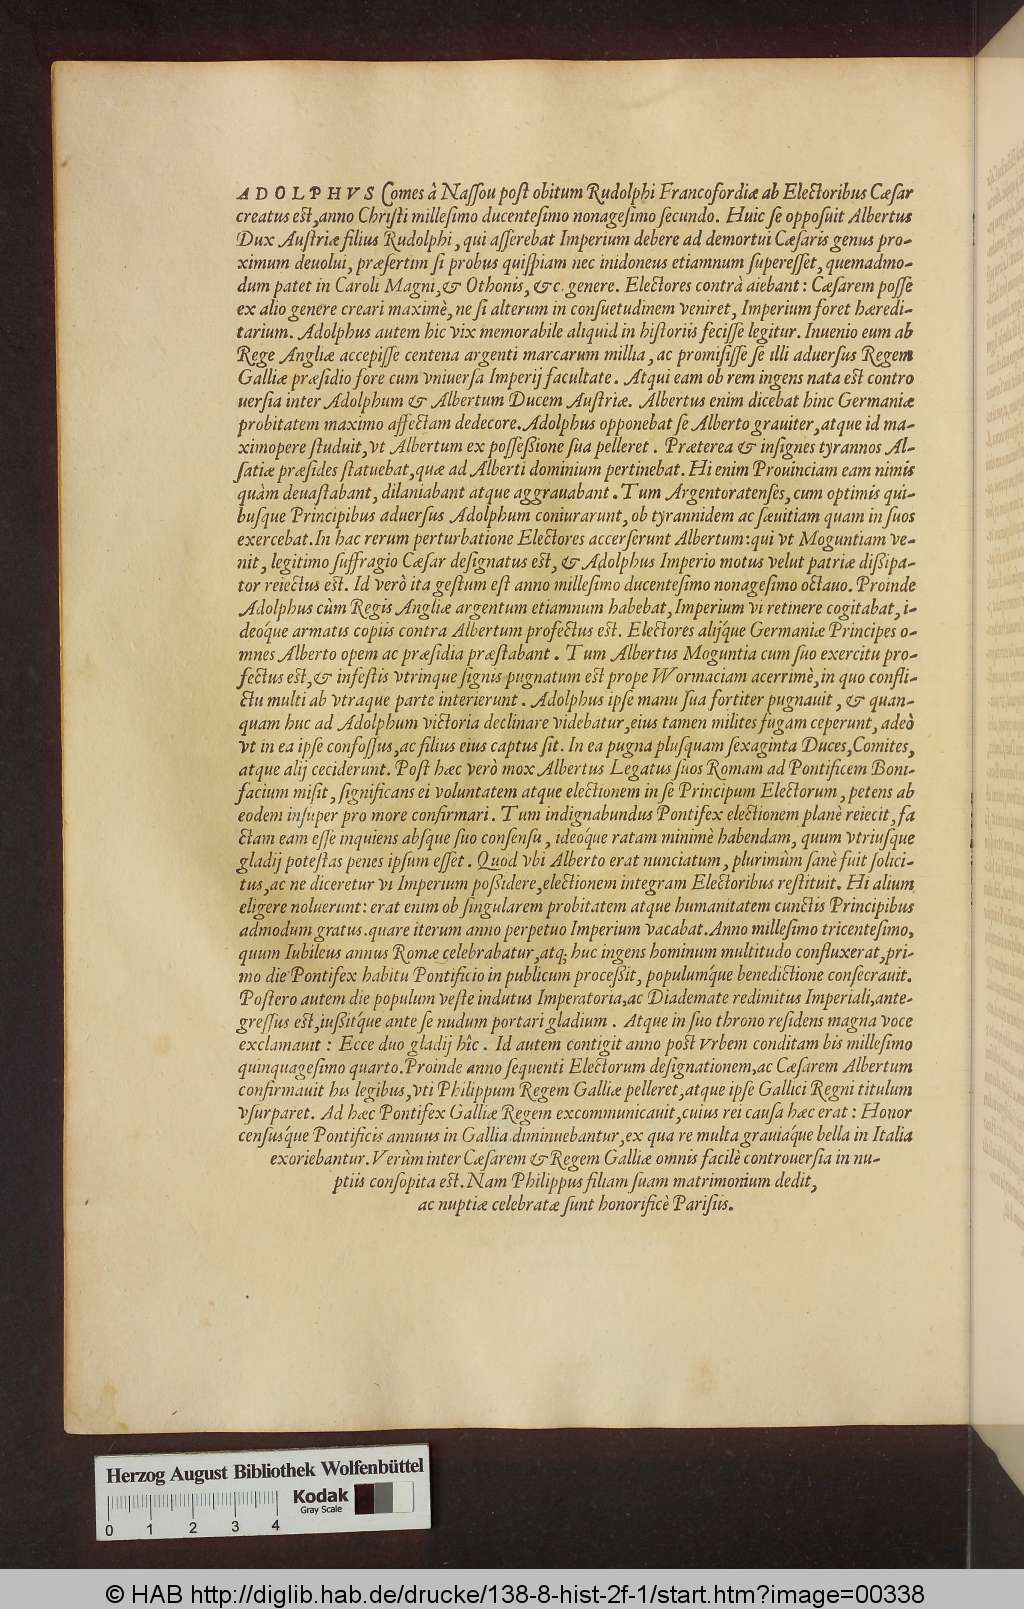 ADOLPHVS Comes à Naſſou poſt obitum Rudolphi Francofordiæ ab Electoribus Cæſar
creatus eſt, anno Chriſti milleſimo ducenteſimo nonageſimo ſecundo. Huic ſe oppoſuit Albertus
Dux Auſtriæ filius Rudolphi, qui aſſerebat Imperium debere ad demortui Cæſaris genus pro-
ximum deuolui, præſertim ſi probus quiſpiam nec inidoneus etiamnum ſupereſſet, quemadmo-
dum patet in Caroli Magni, & Othonis, &c. genere. Electores contrà aiebant: Cæſarem poſſe
ex alio genere creari maximè, ne ſi alterum in conſuetudinem veniret, Imperium foret hæredi-
tarium. Adolphus autem hic vix memorabile aliquid in hiſtoriis feciſſe legitur. Inuenio eum ab
Rege Angliæ accepiſſe centena argenti marcarum millia, ac promiſiſſe ſe illi aduerſus Regem
Galliæ præſidio fore cum vniuerſa Imperij facultate. Atqui eam ob rem ingens nata eſt contro
uerſia inter Adolphum & Albertum Ducem Auſtriæ. Albertus enim dicebat hinc Germaniæ
probitatem maximo affectam dedecore. Adolphus opponebat ſe Alberto grauiter, atque id ma-
ximopere ſtuduit, vt Albertum ex poſſeßione ſua pelleret. Præterea & inſignes tyrannos Al-
ſatiæ præſides ſtatuebat, quæ ad Alberti dominium pertinebat. Hi enim Prouinciam eam nimis
quàm deuaſtabant, dilaniabant atque aggrauabant. Tum Argentoratenſes, cum optimis qui-
buſque Principibus aduerſus Adolphum coniurarunt, ob tyrannidem ac ſæuitiam quam in ſuos
exercebat. In hac rerum perturbatione Electores accerſerunt Albertum: qui vt Moguntiam ve-
nit, legitimo ſuffragio Cæſar deſignatus eſt, & Adolphus Imperio motus velut patriæ dißipa-
tor reiectus eſt. Id verò ita geſtum eſt anno milleſimo ducenteſimo nonageſimo octauo. Proinde
Adolphus cùm Regis Angliæ argentum etiamnum habebat, Imperium vi retinere cogitabat, i-
deoq́ue armatis copiis contra Albertum profectus eſt. Electores alijq́ue Germaniæ Principes o-
mnes Alberto opem ac præſidia præſtabant. Tum Albertus Moguntia cum ſuo exercitu pro-
fectus eſt, & infeſtis vtrinque ſignis pugnatum eſt prope Wormaciam acerrimè, in quo confli-
ctu multi ab vtraque parte interierunt. Adolphus ipſe manu ſua fortiter pugnauit, & quan-
quam huc ad Adolphum victoria declinare videbatur, eius tamen milites fugam ceperunt, adeò
vt in ea ipſe confoſſus, ac filius eius captus ſit. In ea pugna pluſquam ſexaginta Duces, Comites,
atque alij ceciderunt. Poſt hæc verò mox Albertus Legatus ſuos Romam ad Pontificem Boni-
facium miſit, ſignificans ei voluntatem atque electionem in ſe Principum Electorum, petens ab
eodem inſuper pro more confirmari. Tum indignabundus Pontifex electionem planè reiecit, fa
ctam eam eſſe inquiens abſque ſuo conſenſu, ideoque ratam minimè habendam, quum vtriuſque
gladij poteſtas penes ipſum eſſet. Quod vbi Alberto erat nunciatum, plurimùm ſanè fuit ſolici-
tus, ac ne diceretur vi Imperium poßidere, electionem integram Electoribus reſtituit. Hi alium
eligere noluerunt: erat enim ob ſingularem probitatem atque humanitatem cunctis Principibus
admodum gratus. quare iterum anno perpetuo Imperium vacabat. Anno milleſimo tricenteſimo,
quum Iubileus annus Romæ celebrabatur, atq; huc ingens hominum multitudo confluxerat, pri-
mo die Pontifex habitu Pontificio in publicum proceßit, populumq́ue benedictione conſecrauit.
Poſtero autem die populum veſte indutus Imperatoria, ac Diademate redimitus Imperiali, ante-
greſſus eſt, iußitq́ue ante ſe nudum portari gladium. Atque in ſuo throno reſidens magna voce
exclamauit: Ecce duo gladij hîc. Id autem contigit anno poſt Vrbem conditam bis milleſimo
quinquageſimo quarto. Proinde anno ſequenti Electorum deſignationem, ac Cæſarem Albertum
confirmauit his legibus, vti Philippum Regem Galliæ pelleret, atque ipſe Gallici Regni titulum
vſurparet. Ad hæc Pontifex Galliæ Regem excommunicauit, cuius rei cauſa hæc erat: Honor
cenſusq́ue Pontificis annuus in Gallia diminuebantur, ex qua re multa grauiaq́ue bella in Italia
exoriebantur. Verùm inter Cæſarem & Regem Galliæ omnis facilè controuerſia in nu-
ptiis conſopita eſt. Nam Philippus filiam ſuam matrimonium dedit,
ac nuptiæ celebratæ ſunt honorificè Pariſiis.
Herzog August Bibliothek Wolfenbüttel
Kodak
Gray Scale
0 1 2 3 4
© HAB http://diglib.hab.de/drucke/138-8-hist-2f-1/start.htm?image=00338